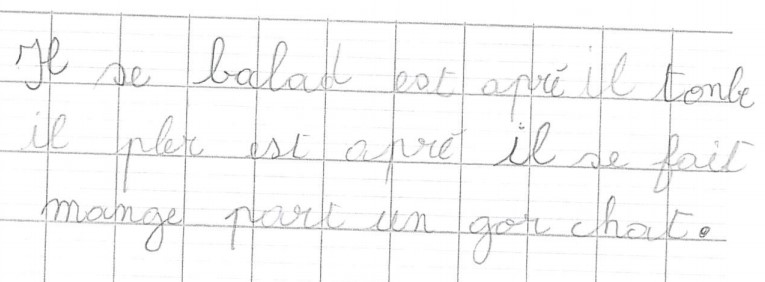 Il se balad est apré il tonbe
il pler est apré il se fait
mange part un gor chat.